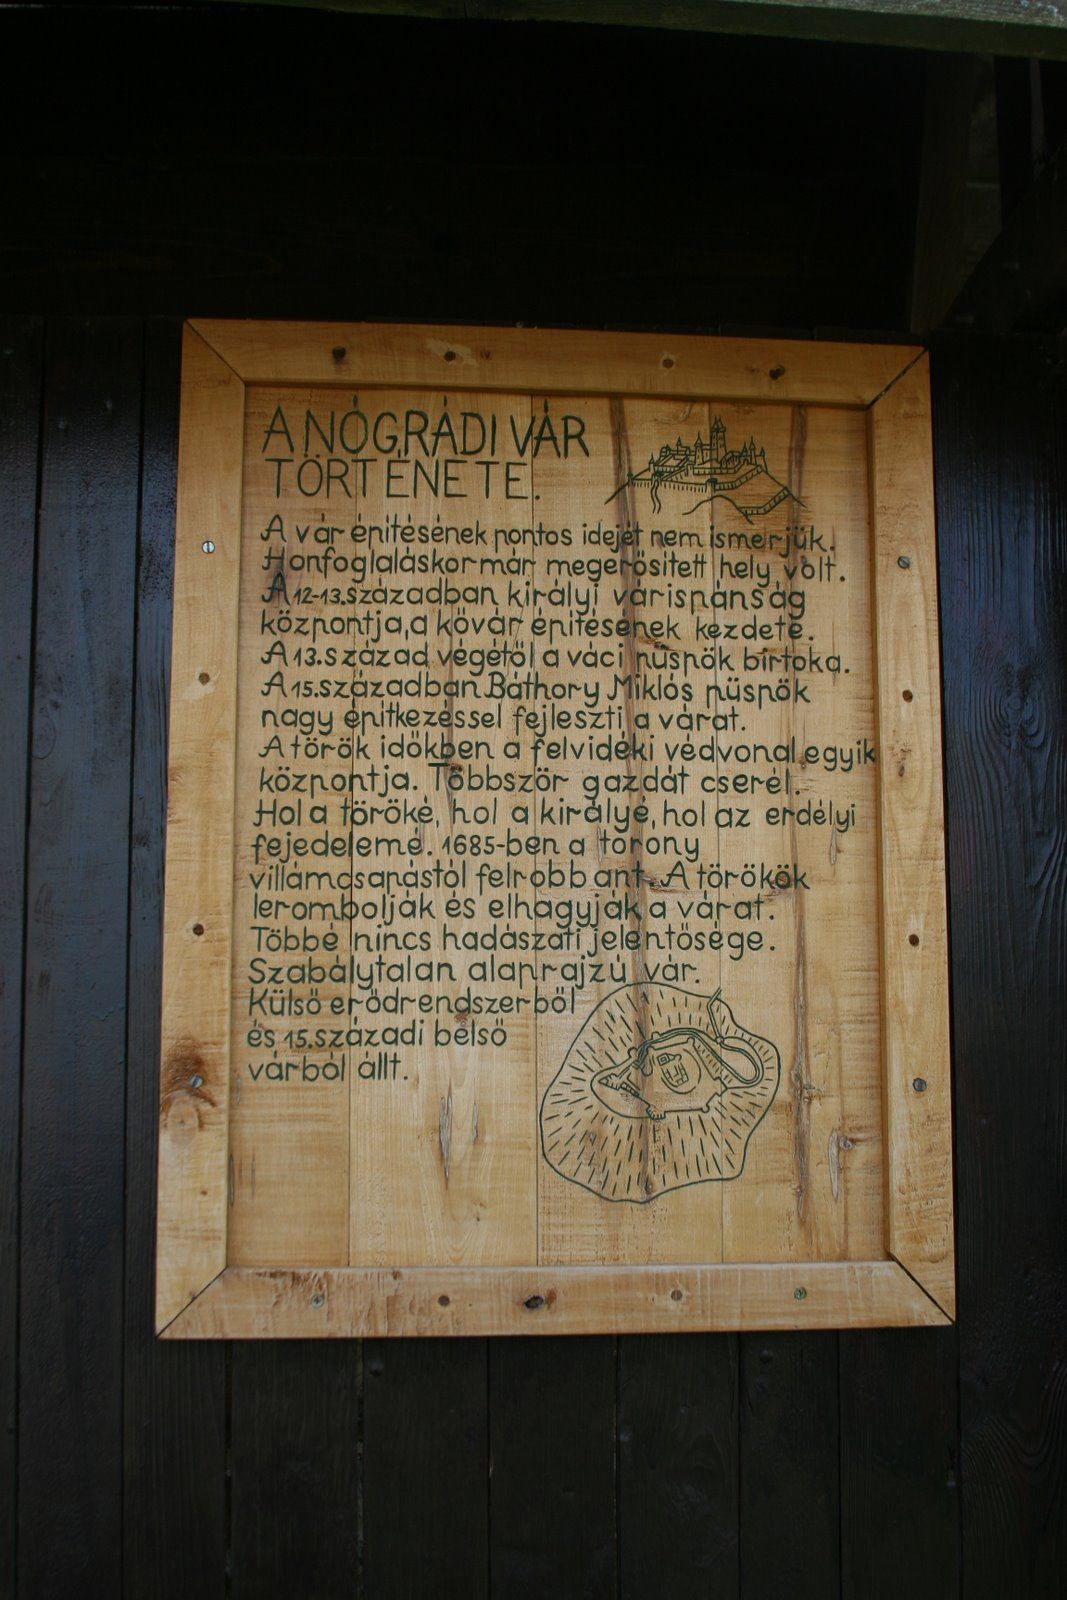 A NÓGRÁDI VÁR
TÖRTÉNETE.
A vár épitésének pontos idejét nem ismerjük.
Honfoglaláskor már megerősitett hely volt.
A 12-13.században királyi várispánság
központja,a kővár épitésének kezdete.
A 13.század végétől a váci püspök birtoka.
A 15.században Báthory Miklós püspök
nagy épitkezéssel fejleszti a várat.
A török időkben a felvidéki védvonal egyik
központja. Többször gazdát cserél.
Hol a töröké, hol a királyé, hol az erdélyi
fejedelemé. 1685-ben a torony
villámcsapástól felrobbant. A törökök
lerombolják és elhagyják a várat.
Többé nincs hadászati jelentősége.
Szabálytalan alaprajzú vár.
Külső erődrendszerből
és 15.századi belső
várból állt.